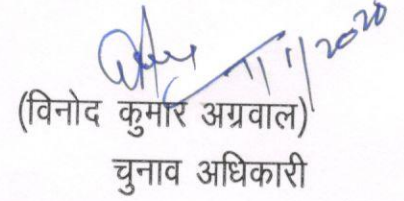 11/1/2020
(विनोद कुमार अग्रवाल)
चुनाव अधिकारी